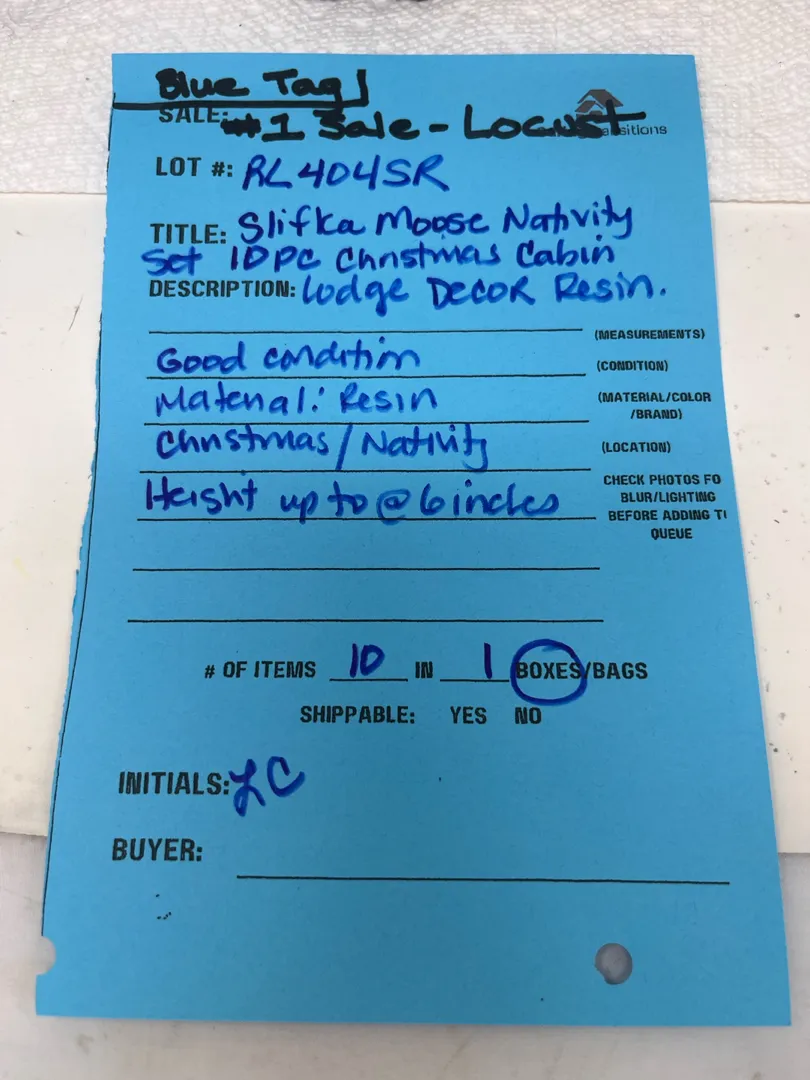 Blue Tag
SALE: #1 Sale - Locust
LOT #: RL404SR
TITLE: Slifka Moose Nativity
Set 10PC Christmas Cabin
DESCRIPTION: Lodge Decor Resin.
(MEASUREMENTS)
Good condition (CONDITION)
Material: Resin (MATERIAL/COLOR
/BRAND)
Christmas/Nativity (LOCATION)
Height up to @ 6 inches CHECK PHOTOS FO
BLUR/LIGHTING
BEFORE ADDING T
QUEUE
# OF ITEMS 10 IN 1 BOXES/BAGS
SHIPPABLE: YES NO
INITIALS: LC
BUYER: